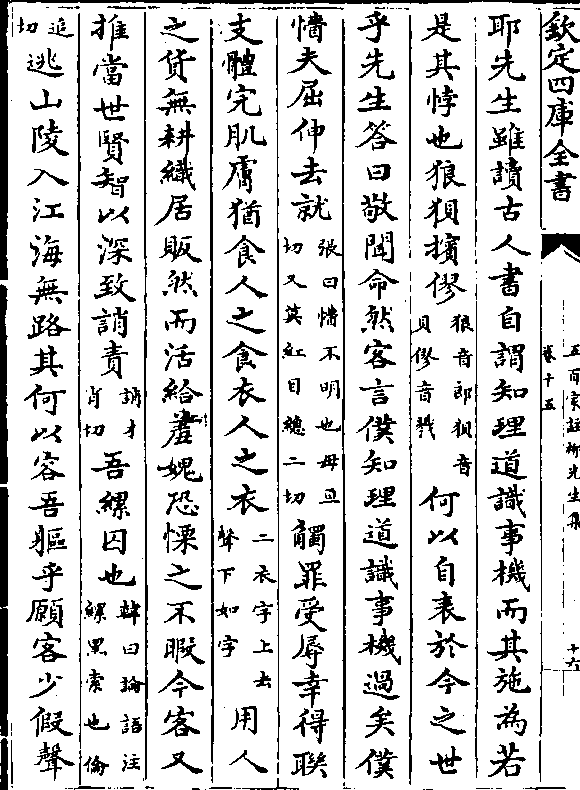 欽定四庫全書
五百家註柳先生集
卷十五
十六
耶先生雖讀古人書自謂知理道識事機而其施為若
是其悖也狼狽擯僇狼音郎狽音貝僇音戮何以自表於今之世
乎先生答曰敬聞命然客言僕知理道識事機過矣僕
懵夫屈伸去就張曰懵不明也母亘切又莫紅目總二切觸罪受辱幸得聯
支體完肌膚猶食人之食衣人之衣二衣字上去聲下如字用人
之貨無耕織居販然而活給羞媿恐慄之不暇今客又
推當世賢智以深致誚責誚才肖切吾縲囚也韓曰論語注縲黑索也倫
追切逃山陵入江海無路其何以容吾軀乎願客少假聲